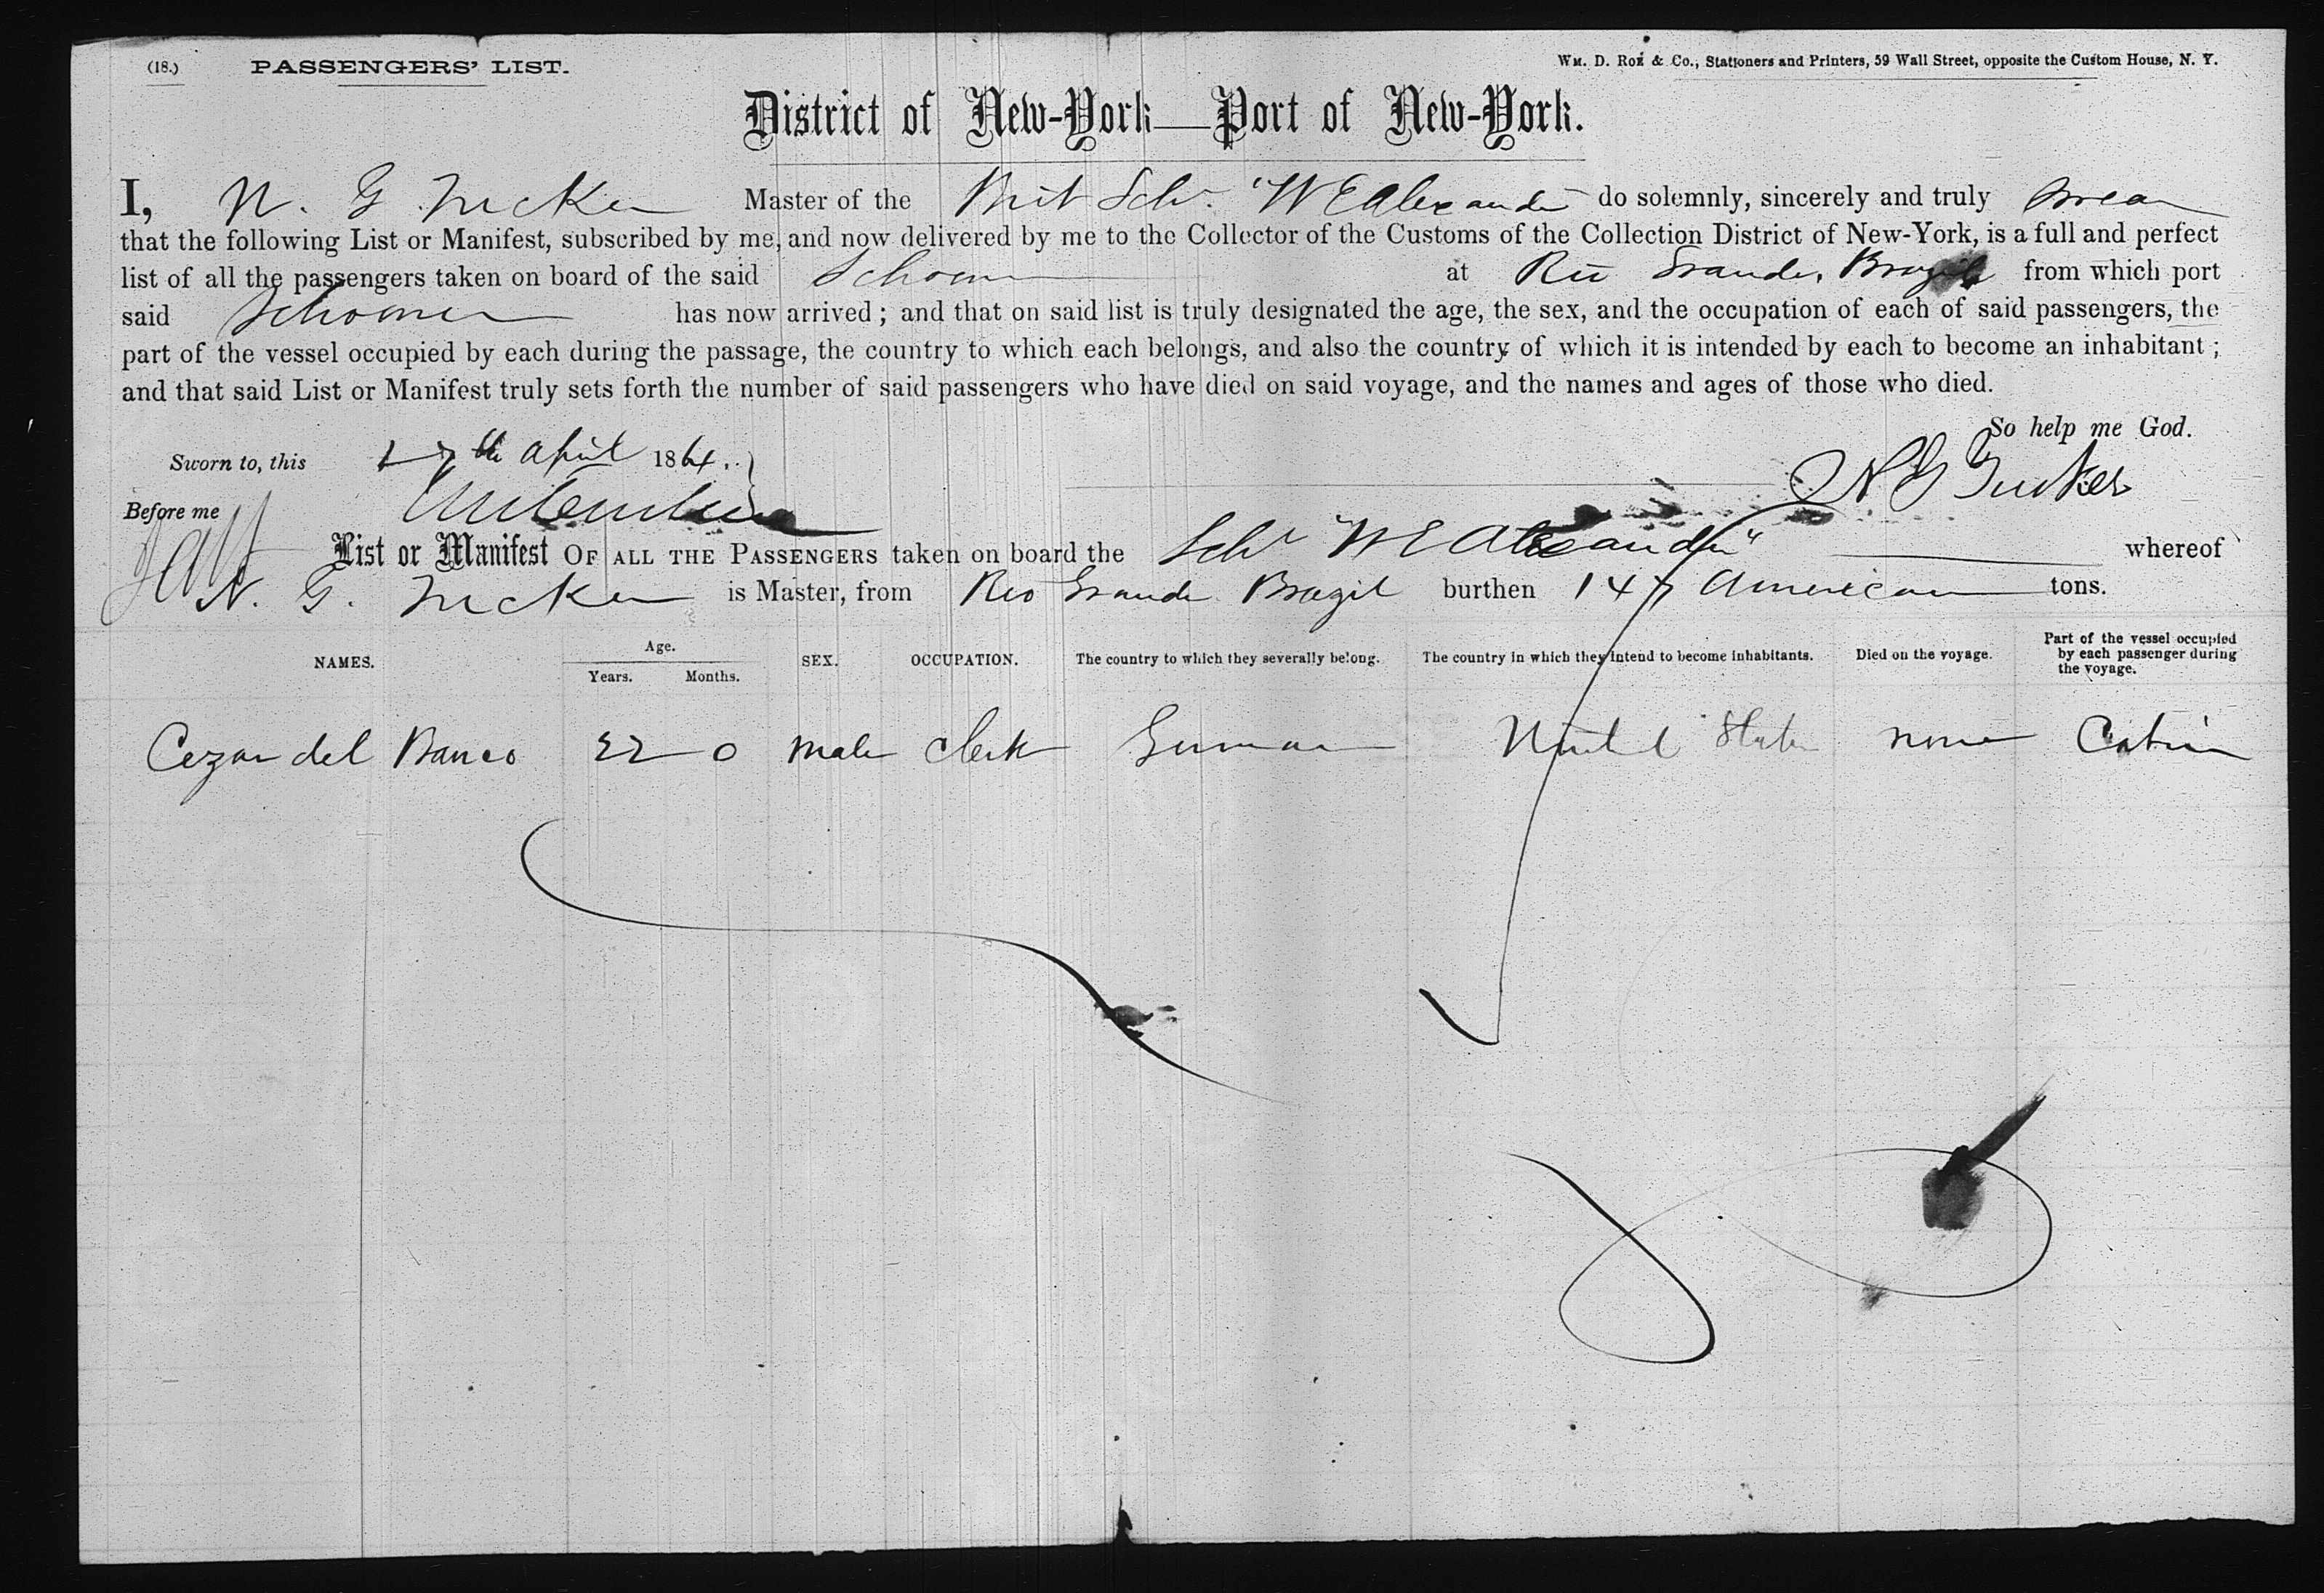 (18.) PASSENGERS' LIST.
WM. D. ROE & CO., Stationers and Printers, 59 Wall Street, opposite the Custom House, N. Y.
District of New-York—Port of New-York.
I, N. G. Tucker Master of the Brit Schr. "W E Alexander" do solemnly, sincerely and truly swear
that the following List or Manifest, subscribed by me, and now delivered by me to the Collector of the Customs of the Collection District of New-York, is a full and perfect
list of all the passengers taken on board of the said Schooner at Rio Grande, Brazil from which port
said Schooner has now arrived; and that on said list is truly designated the age, the sex, and the occupation of each of said passengers, the
part of the vessel occupied by each during the passage, the country to which each belongs, and also the country of which it is intended by each to become an inhabitant;
and that said List or Manifest truly sets forth the number of said passengers who have died on said voyage, and the names and ages of those who died.
So help me God.
Sworn to, this th April 1864.
N G Tucker
Before me
List or Manifest OF ALL THE PASSENGERS taken on board the Schr "W E Alexander" whereof
N. G. Tucker is Master, from Rio Grande Brazil burthen 147 American tons.
NAMES. Age. Years. Months. SEX. OCCUPATION. The country to which they severally belong. The country in which they intend to become inhabitants. Died on the voyage. Part of the vessel occupied by each passenger during the voyage.
Cezar del Banco 22 0 male Clerk German United States none Cabin